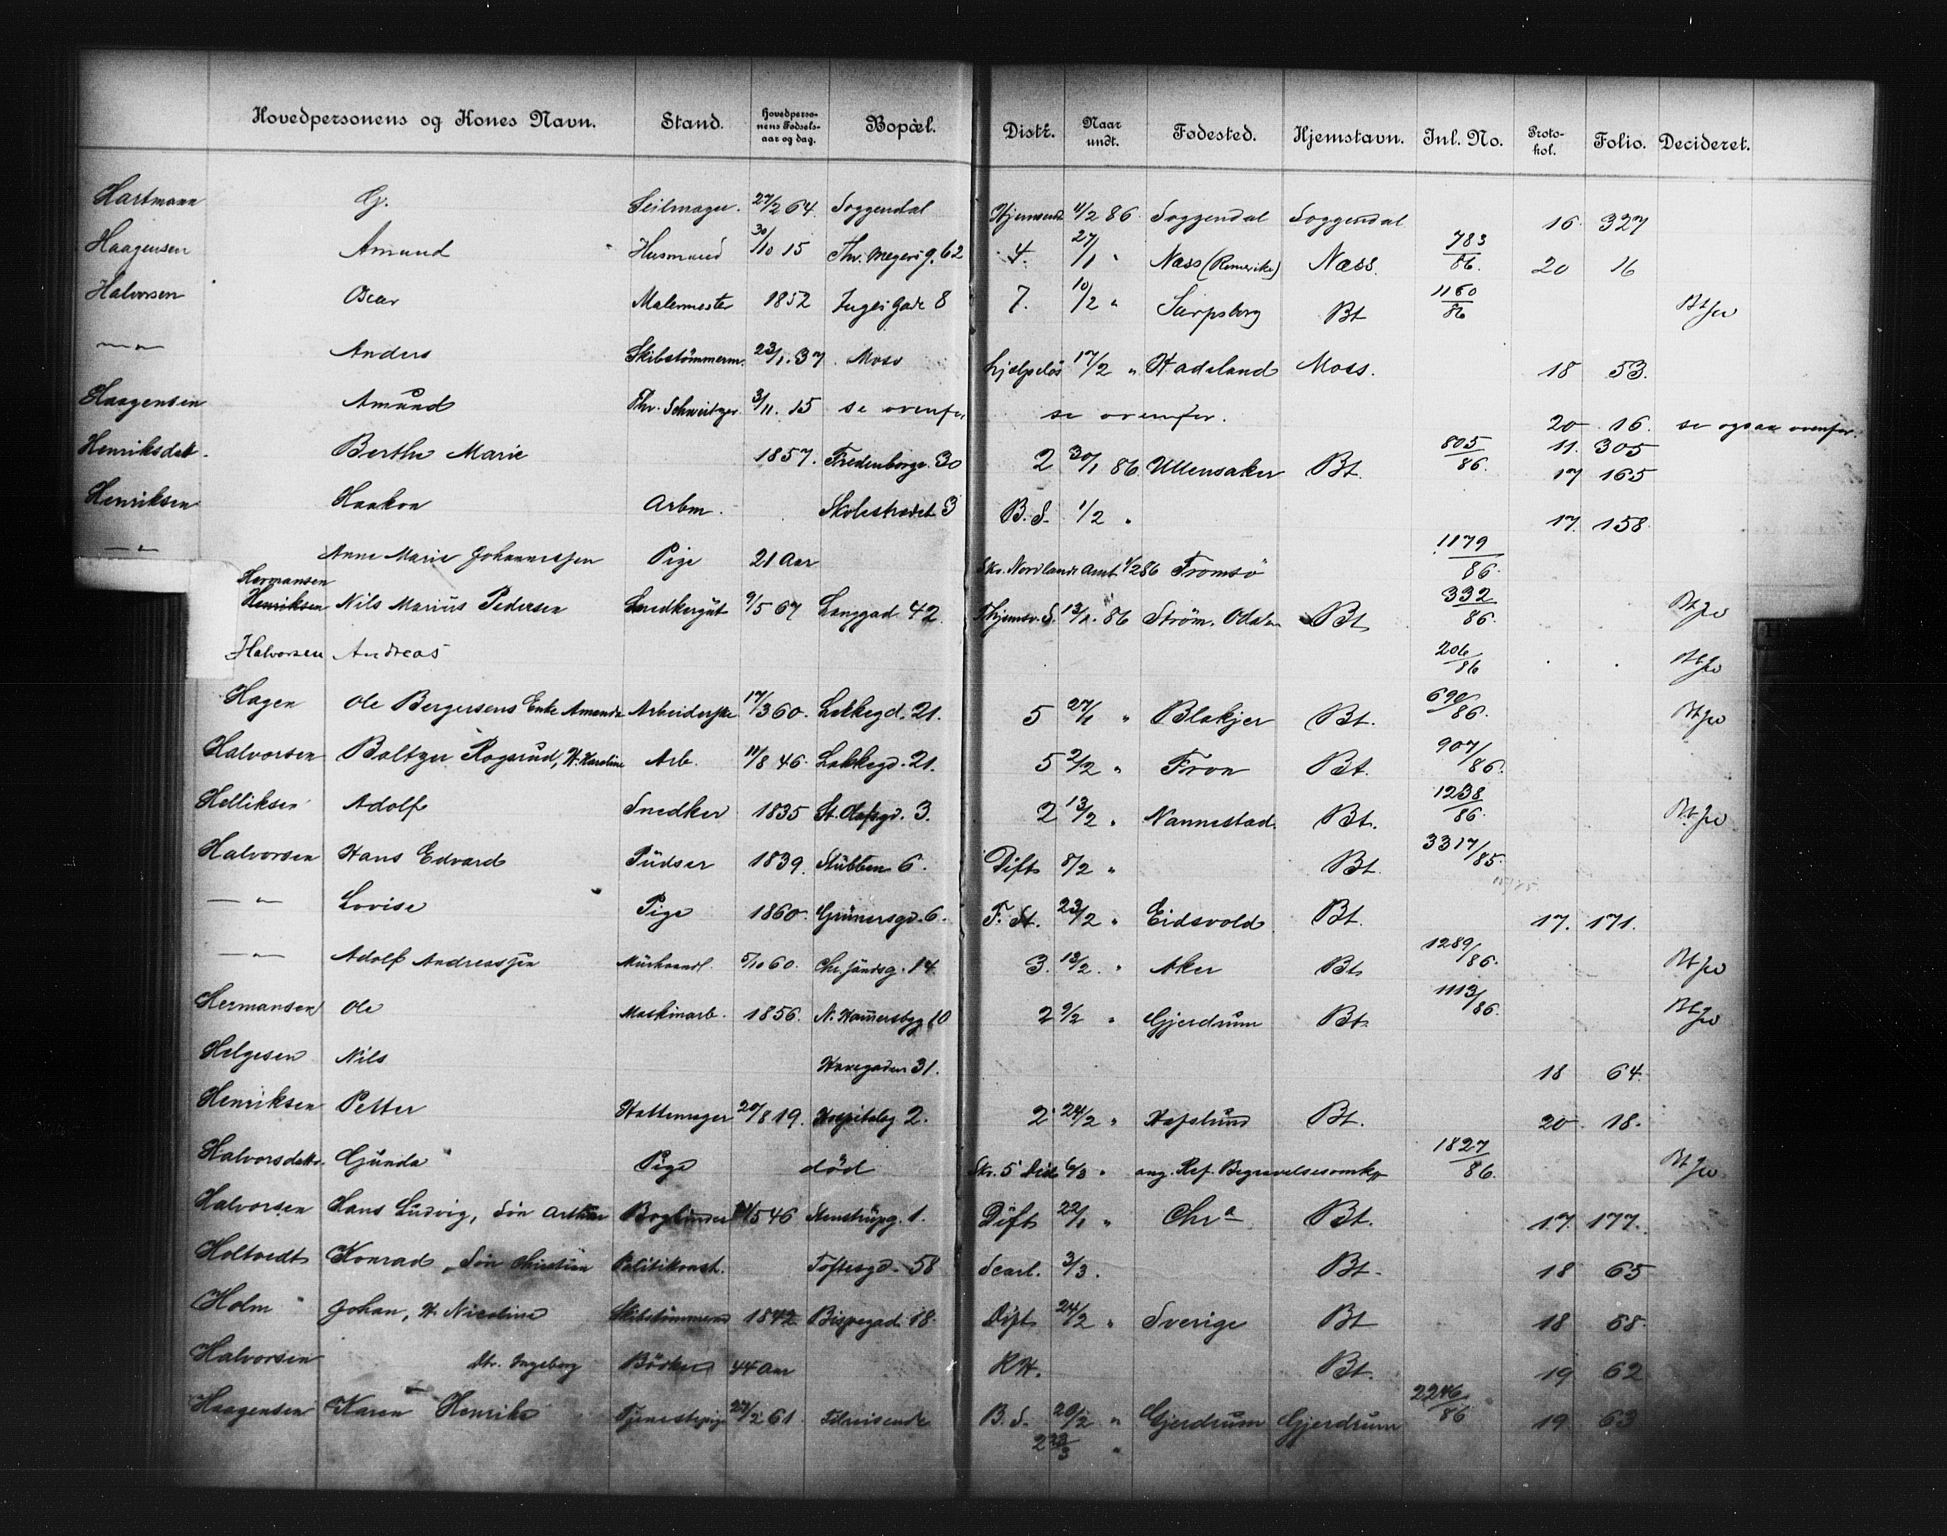 Hovedpersonens og Kones Navn. Stand. Hovedpersonens Fødselsaar og dag. Bopæl. Distr. Naar undt. Fødested. Hjemstavn. Inl. No. Protokol. Folio. Decideret.
Hartmann G. Seilmager. 27/2 64. Soggendal 4/2 86. Soggendal Soggendal 16 327
Haagensen Amund Husmand 30/10 15 Thv. Meyers g. 62 4. 27/1 " Næss (Romerike) Næss. 783/86. 20 16
Halvorsen Oscar Malermester 1852 Inges Gade 8 7. 10/2 " Sarpsborg Bt 1160/86
— " — Anders Skibstømmerm. 23/1. 37. Moss hjælpeløs 17/2 " Hadeland Moss. 18 53.
Haagensen Amund Thv. Schweitzer 3/11. 15 se ovenfor se ovenfor. 20 16. se ogsaa ovenfor.
Henriksdatt. Berthe Marie 1857. Fredenborgv. 30 2 30/1 86. Ullensaker Bt. 805/86. 11. 305 17 165
Henriksen Haakon Arbm. Skolestrædet 3 B. S. 1/2 " 17. 158
— " — Anne Marie Johannessen Pige 21 Aar Sko. Nordlands Amt 4/2 86 Tromsö 1179/86.
Hermansen
Henriksen Nils Marius Pedersen Snedkergut 9/5 67 Langgad 42. 13/2. 86 Strøm. Odalen Bt 332/86.
Halvorsen Andreas 206/86
Hagen Ole Bergersens Enke Amanda Arbeiderske 17/3 60. Lakkegd. 21. 5 27/1 " Blakjer Bt. 690/86.
Halvorsen Baltzer Rogsrud, H. Karoline Arb. 11/8 46. Lakkegd. 21. 5 2/2 " Fron Bt. 907/86.
Helliksen Adolf Snedker 1835 St. Olafsgd. 3. 2 13/2 " Nannestad Bt. 1238/86.
Halvorsen Hans Edvard Pudser 1839. Stubben 6. Dift 8/2 " Bt. 3317/85.
— " — Lovise Pige 1860. Grünersgd. 6. F. St. 23/2 " Eidsvold Bt. 17. 171.
— " — Adolf Andreassen Murhaandl. 5/10 60. Chr. sandsg. 14 3. 13/2. " Aker Bt 1289/86.
Hermansen Ole Maskinarb. 1856. N. Hammersbg 10 2 9/2 " Gjerdrum Bt. 1113/86.
Helgesen Nils Haxegaden 31. 18 64.
Henriksen Petter Hattemager 20/8 19. Hospitalsg 2. 2 24/2 " Hafslund Bt. 20 18.
Halvorsdatt. Gunda Pige død Sko. 5 Dist 6/3 " ang. Ref. Begravelsesomk. 1827/86.
Halvorsen Hans Ludvig, Søn Arthur Bogbinder /5 46 Stenstrupg. 1. Dift 22/1 " Chr a Bt. 17. 177.
Holtvedt Konrad, Søn Christian Politikonst. Toftesgd. 58 Scarl. 3/3. Bt. 18 65
Holm Johan, H. Nicoline Skibstømmerm 1842 Bispegad. 18. Dift 24/2 " Sverige Bt 18 68.
Halvorsen dtr. Ingeborg Bødker 44 Aar R H. Bt. 19 62
Haagensen Karen Henrike Tjenestepige 27/2 61. Tilreisende B. S. 20/2 " Gjerdrum Gjerdrum 2246/86 19 63
2 23/3 "